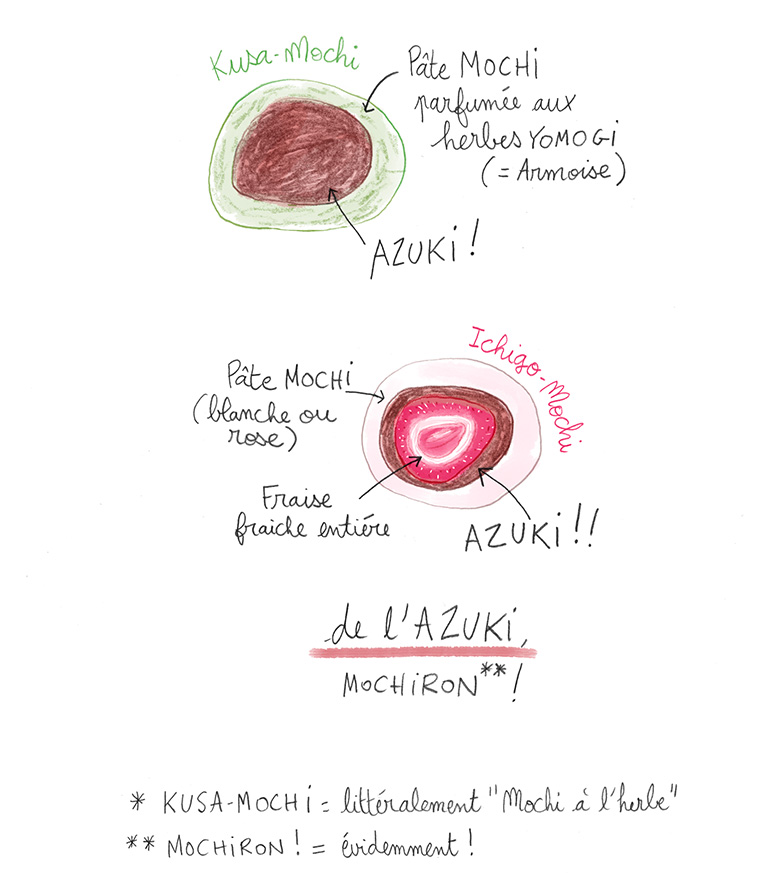 Kusa-Mochi
Pâte MOCHi
parfumée aux
herbes YOMOGi
(= Armoise)
AZUKi !
Ichigo-Mochi
Pâte MOCHi
(blanche ou
rose)
Fraise
fraiche entiére
AZUKi !!
de l'AZUKi,
MOCHiRON** !
* KUSA-MOCHi = littéralement "Mochi à l'herbe"
** MOCHiRON ! = évidemment !